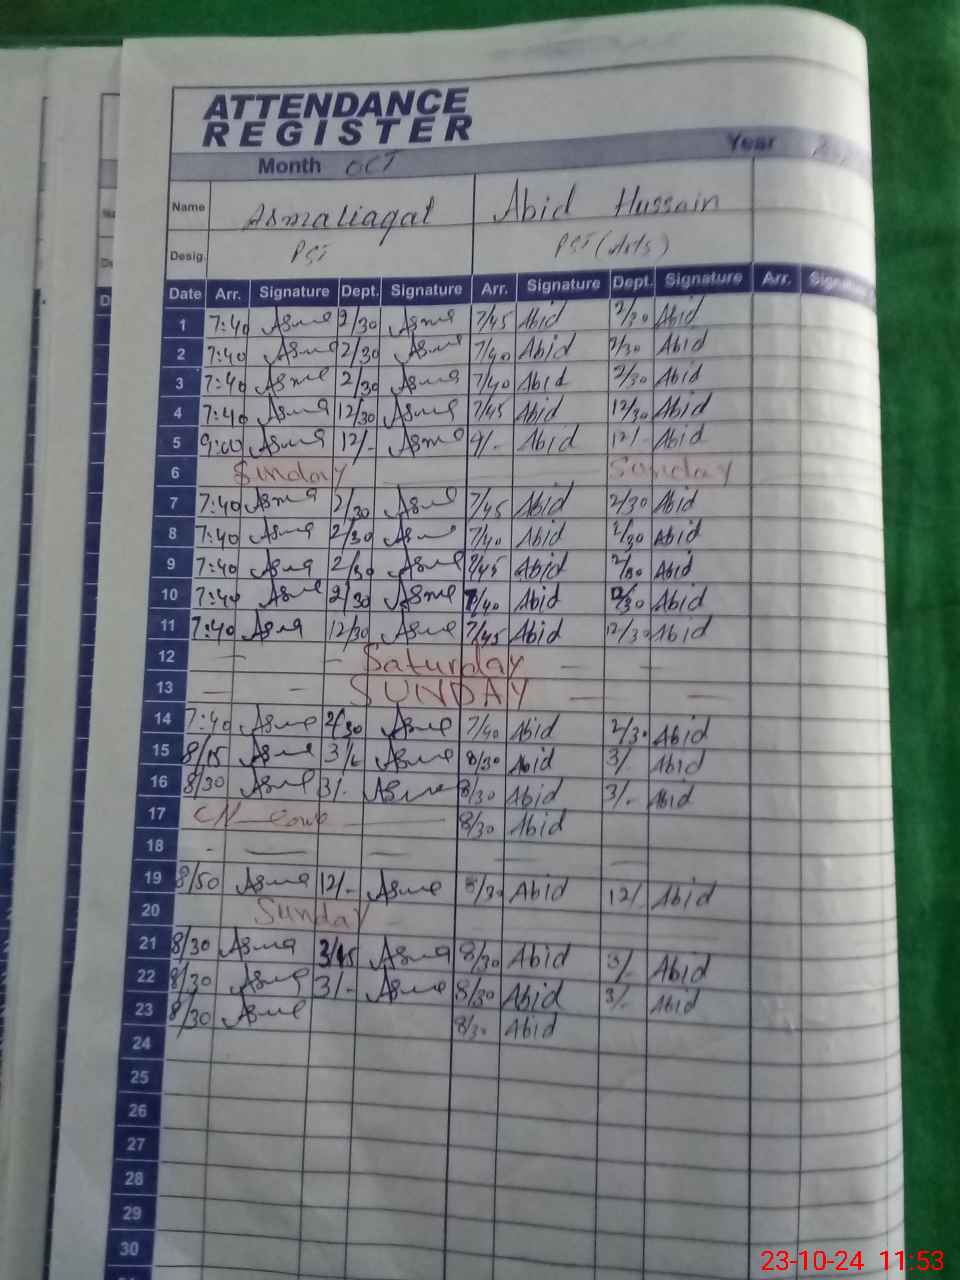 ATTENDANCE
REGISTER
Month OCT Year
Name Asmaliaqat Abid Hussain
Desig. PST PST (Arts)
Date Arr. Signature Dept. Signature Arr. Signature Dept. Signature Arr. Signature
1 7:40 Asma 2/30 Asma 7/45 Abid 2/30 Abid
2 7:40 Asma 2/30 Asma 7/40 Abid 2/30 Abid
3 7:40 Asma 2/30 Asma 7/40 Abid 2/30 Abid
4 7:40 Asma 12/30 Asma 7/45 Abid 12/30 Abid
5 9:00 Asma 12/- Asma 9/- Abid 12/- Abid
6 Sunday Sunday
7 7:40 Asma 2/30 Asma 7/45 Abid 2/30 Abid
8 7:40 Asma 2/30 Asma 7/40 Abid 2/30 Abid
9 7:40 Asma 2/30 Asma 7/45 Abid 2/30 Abid
10 7:40 Asma 2/30 Asma 7/40 Abid 2/30 Abid
11 7:40 Asma 12/30 Asma 7/45 Abid 12/30 Abid
12 - - Saturday - -
13 - - SUNDAY - -
14 7:40 Asma 2/30 Asma 7/40 Abid 2/30 Abid
15 8/15 Asma Asma 8/30 Abid 3/- Abid
16 8/30 Asma 3/- Asma 8/30 Abid 3/- Abid
17 8/30 Abid
18 - - - - - -
19 8/50 Asma 12/- Asma 8/30 Abid 12/- Abid
20 Sunday
21 8/30 Asma 3/15 Asma 8/30 Abid 3/- Abid
22 8/30 Asma 3/- Asma 8/30 Abid 3/- Abid
23 8/30 Asma 8/30 Abid
24
25
26
27
28
29
30
23-10-24 11:53